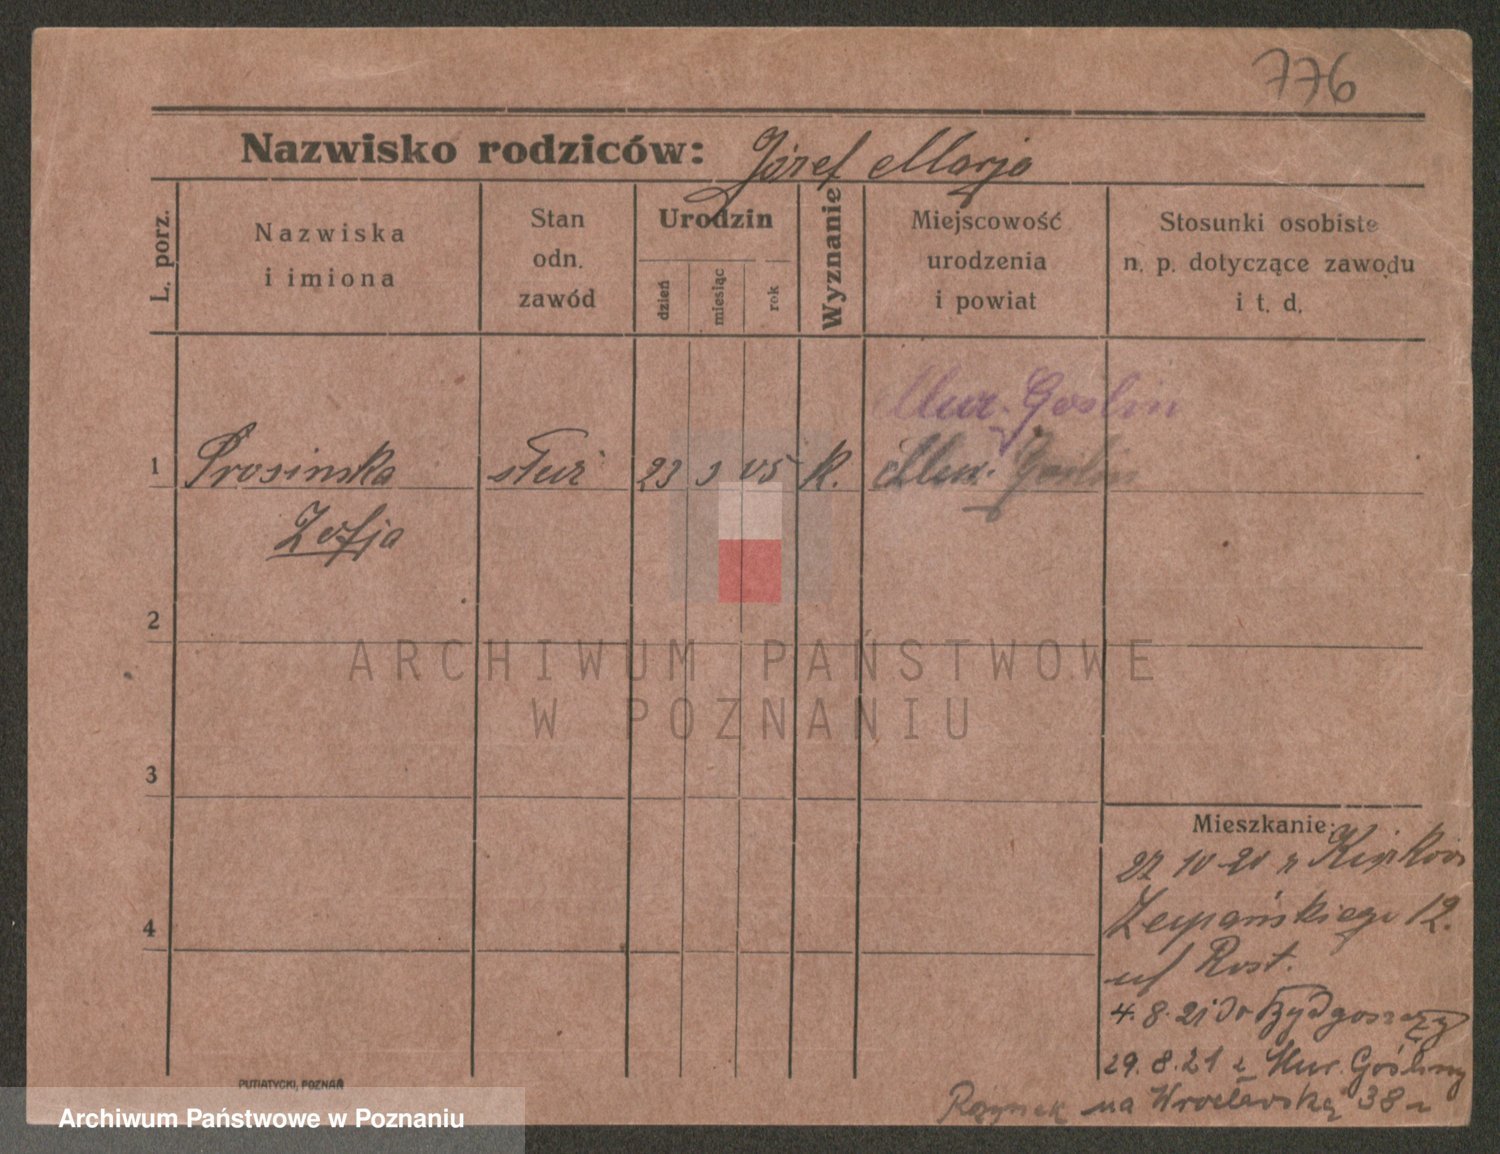 776
Nazwisko rodziców: Józef Marja
L. porz.
Nazwiska
i imiona
Stan
odn.
zawód
Urodzin
dzień
miesiąc
rok
Wyznanie
Miejscowość
urodzenia
i powiat
Stosunki osobiste
n. p. dotyczące zawodu
i t. d.
Mur. Goslin
1 Prosinska służ 23 3 05 K. Mur. Goslin
Zofja
2
ARCHIWUM PAŃSTWOWE
W POZNANIU
3
Mieszkanie:
4
12.
Rost.
4. 8. 21 do Bydgoszczy
29. 8. 21 z Mur. Gośliny
na Wrocławską 38
PUTIATYCKI, POZNAŃ
Archiwum Państwowe w Poznaniu